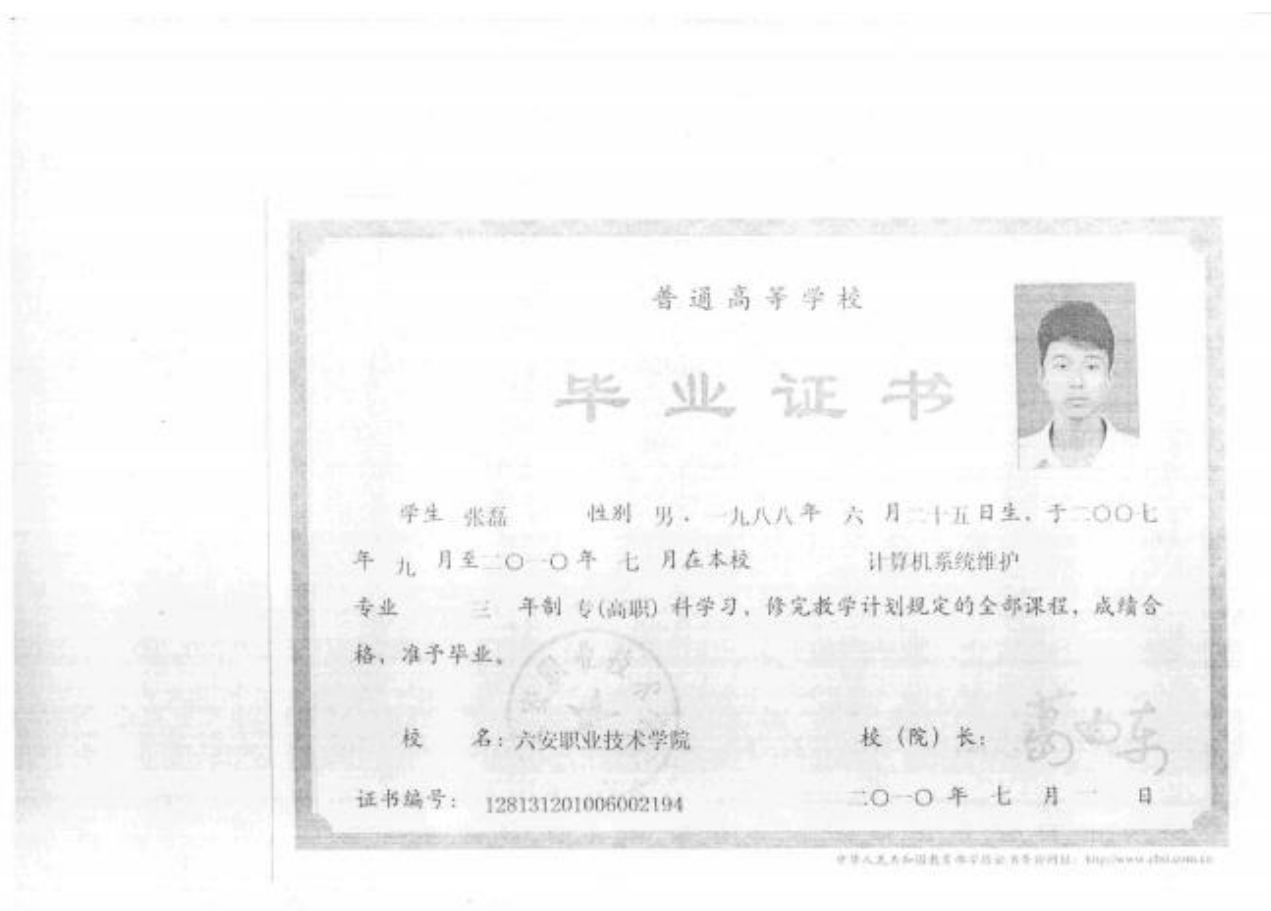 普通高等学校
毕业证书
学生 张磊 性别 男，一九八八年 六 月二十五日生，于二〇〇七
年 九 月至二〇一〇年 七 月在本校 计算机系统维护
专业 三 年制 专(高职) 科学习，修完教学计划规定的全部课程，成绩合
格，准予毕业。
校 名：六安职业技术学院 校（院）长：
证书编号： 128131201006002194 二〇一〇年 七 月 一 日
中华人民共和国教育部学历证书查询网址：http://www.chsi.com.cn